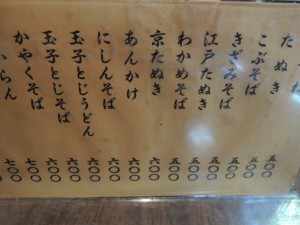 たぬき 五〇〇
こぶそば 五〇〇
きざみそば 五〇〇
江戸たぬき 五〇〇
わかめそば 五〇〇
京たぬき 六〇〇
あんかけ 六〇〇
にしんそば 六〇〇
玉子とじうどん 六〇〇
玉子とじそば 六〇〇
かやくそば 七〇〇
七〇〇